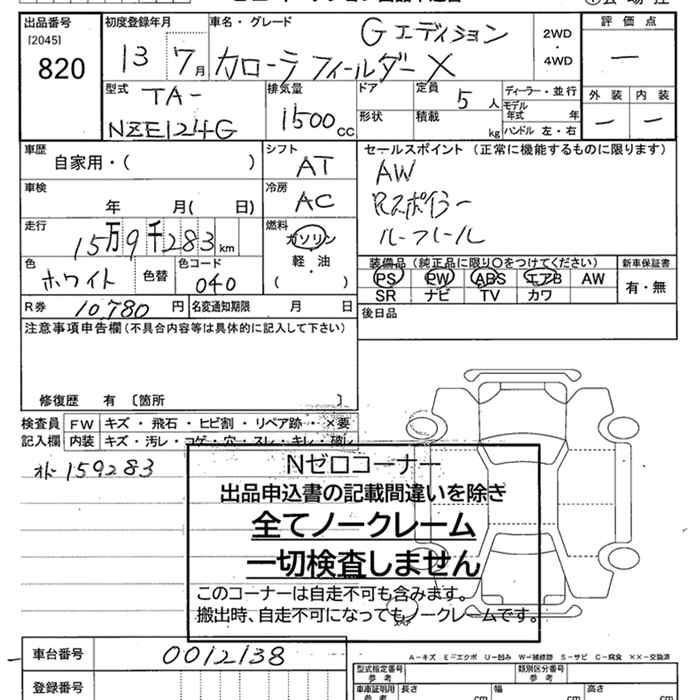 出品番号 初度登録年月 車名・グレード Gエディション 2WD 評価点
[2045] 13 7月 カローラフィールダーX ・ 4WD ー
820
型式 TA- 排気量 ドア 定員 5人 ディーラー・並行 外装 内装
NZE124G 1500cc 形状 積載 kg モデル年式 年 ー ー
ハンドル 左・右
車歴 自家用・( ) シフト AT セールスポイント(正常に機能するものに限ります)
車検 年 月( 日) 冷房 AC AW
Rスポイラー
走行 15万9千283km 燃料 ガソリン ルーフレール
軽・油
色 ホワイト 色替 色コード 040 ( ) 装備品(純正品に限り○をつけてください) 新車保証書
PS PW ABS エアB AW 有・無
SR ナビ TV カワ
R券 10,780円 名変通知期限 月 日 後日品
注意事項申告欄(不具合内容等は具体的に記入して下さい)
修復歴 有〔箇所 〕
検査員 FW キズ・飛石・ヒビ割・リペア跡・×要
記入欄 内装 キズ・汚レ・コゲ・穴・スレ・キレ・破レ
オドー159283
Nゼロコーナー
出品申込書の記載間違いを除き
全てノークレーム
一切検査しません
このコーナーは自走不可も含みます。
搬出時、自走不可になってもノークレームです。
車台番号 0012138 A-キズ E-エクボ U-凹み W-補修跡 S-サビ C-腐食 ××-交換済
登録番号 型式指定番号 参考 類別区分番号 参考
車車証明用 参考 長さ cm 幅 cm 高さ cm